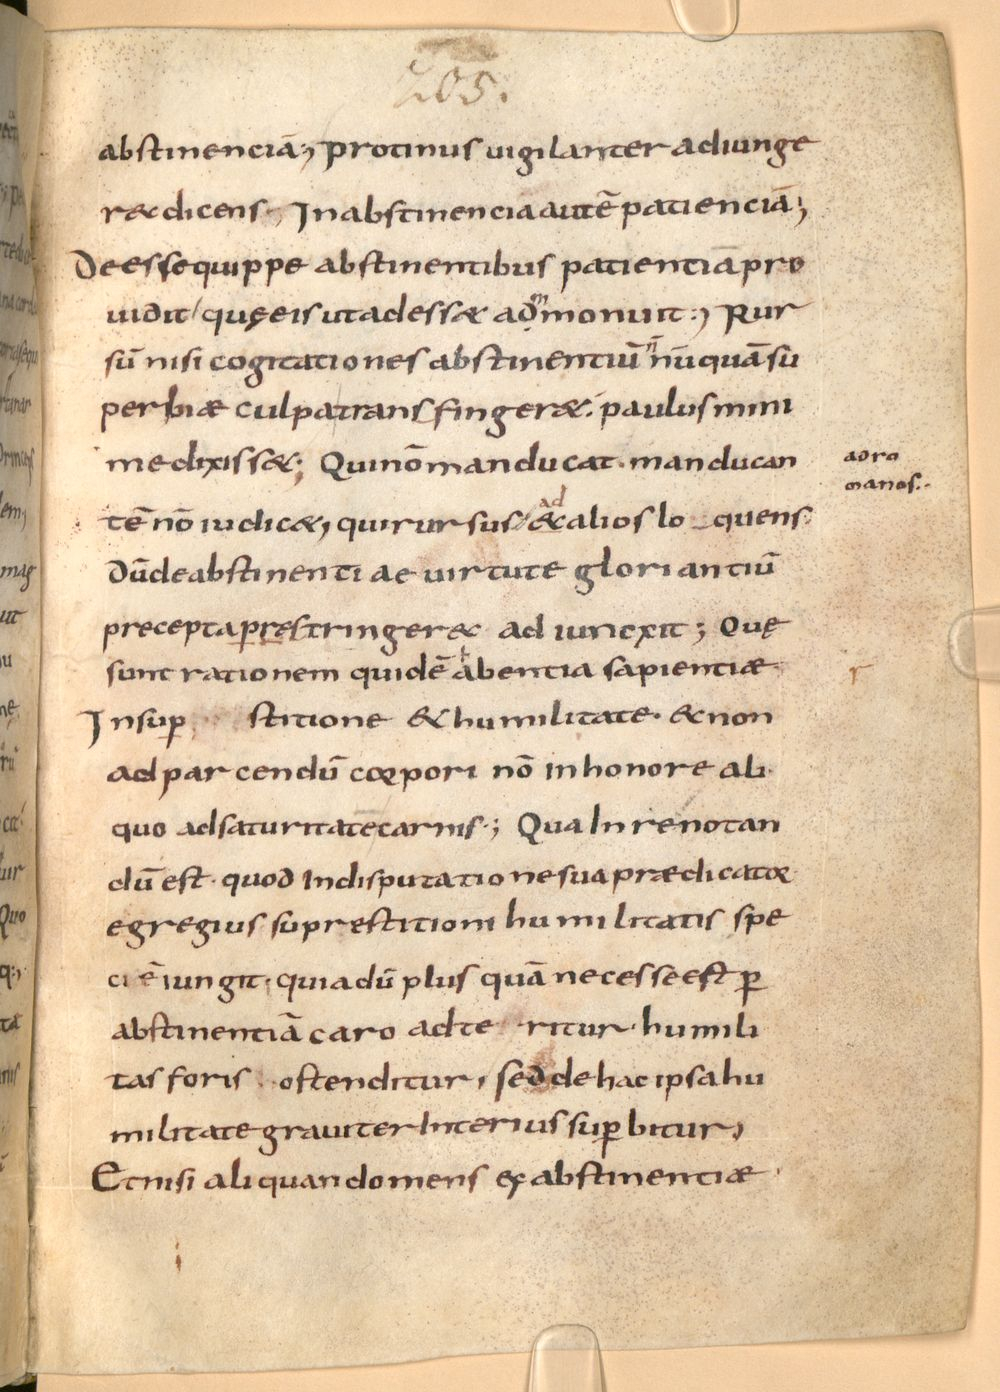 205.
abstinenciā; protinus uigilanter adiunge
r& dicens·, In abstinencia autē patienciā;
Deesse quippe abstinentibus patientiā pro
uidit/ quę eis ut adess& adm̄monuit·; Rur
sū nisi cogitationes abstinentiū n̄ nūquā su
perbiæ culpa transfinger&·; paulus mini
me dixiss&; Qui nō manducat· manducan
tē nō iudic&, qui rursus/ ad & alios lo quens·
dū de abstinentiae uirtute gloriantiū
precepta p̱ręstringer& ad iunexit; Quę
sunt rationem quidē abentia sapientiæ·
In sup̱ stitione & humilitate· & non
ad parcendū corpori nō in honore ali
quo ad saturitatē carnis·; Qua In re notan
dū est· quod In disputatione sua prædicator
egregius suprestitioni humilitatis spe
ciē iungit· quia dū plus quā necesse est p̱
abstinentiā caro adte ritur· humili
tas foris ostenditur, sed de hac ipsa hu
militate grauiter Interius sup̱bitur,
Et nisi aliquando mens ex abstinentiæ·
ad ro
manos·.
r